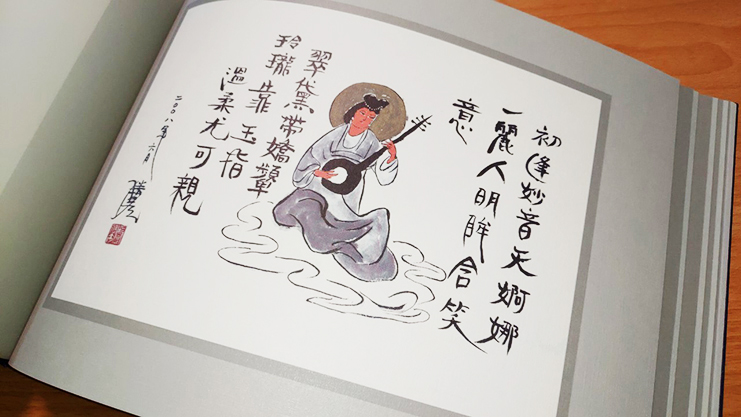 初逢妙音天婀娜
一麗人明眸含笑
意
翠黛帶嬌顰
玲瓏靠玉指
溫柔尤可親
二〇〇八年六月